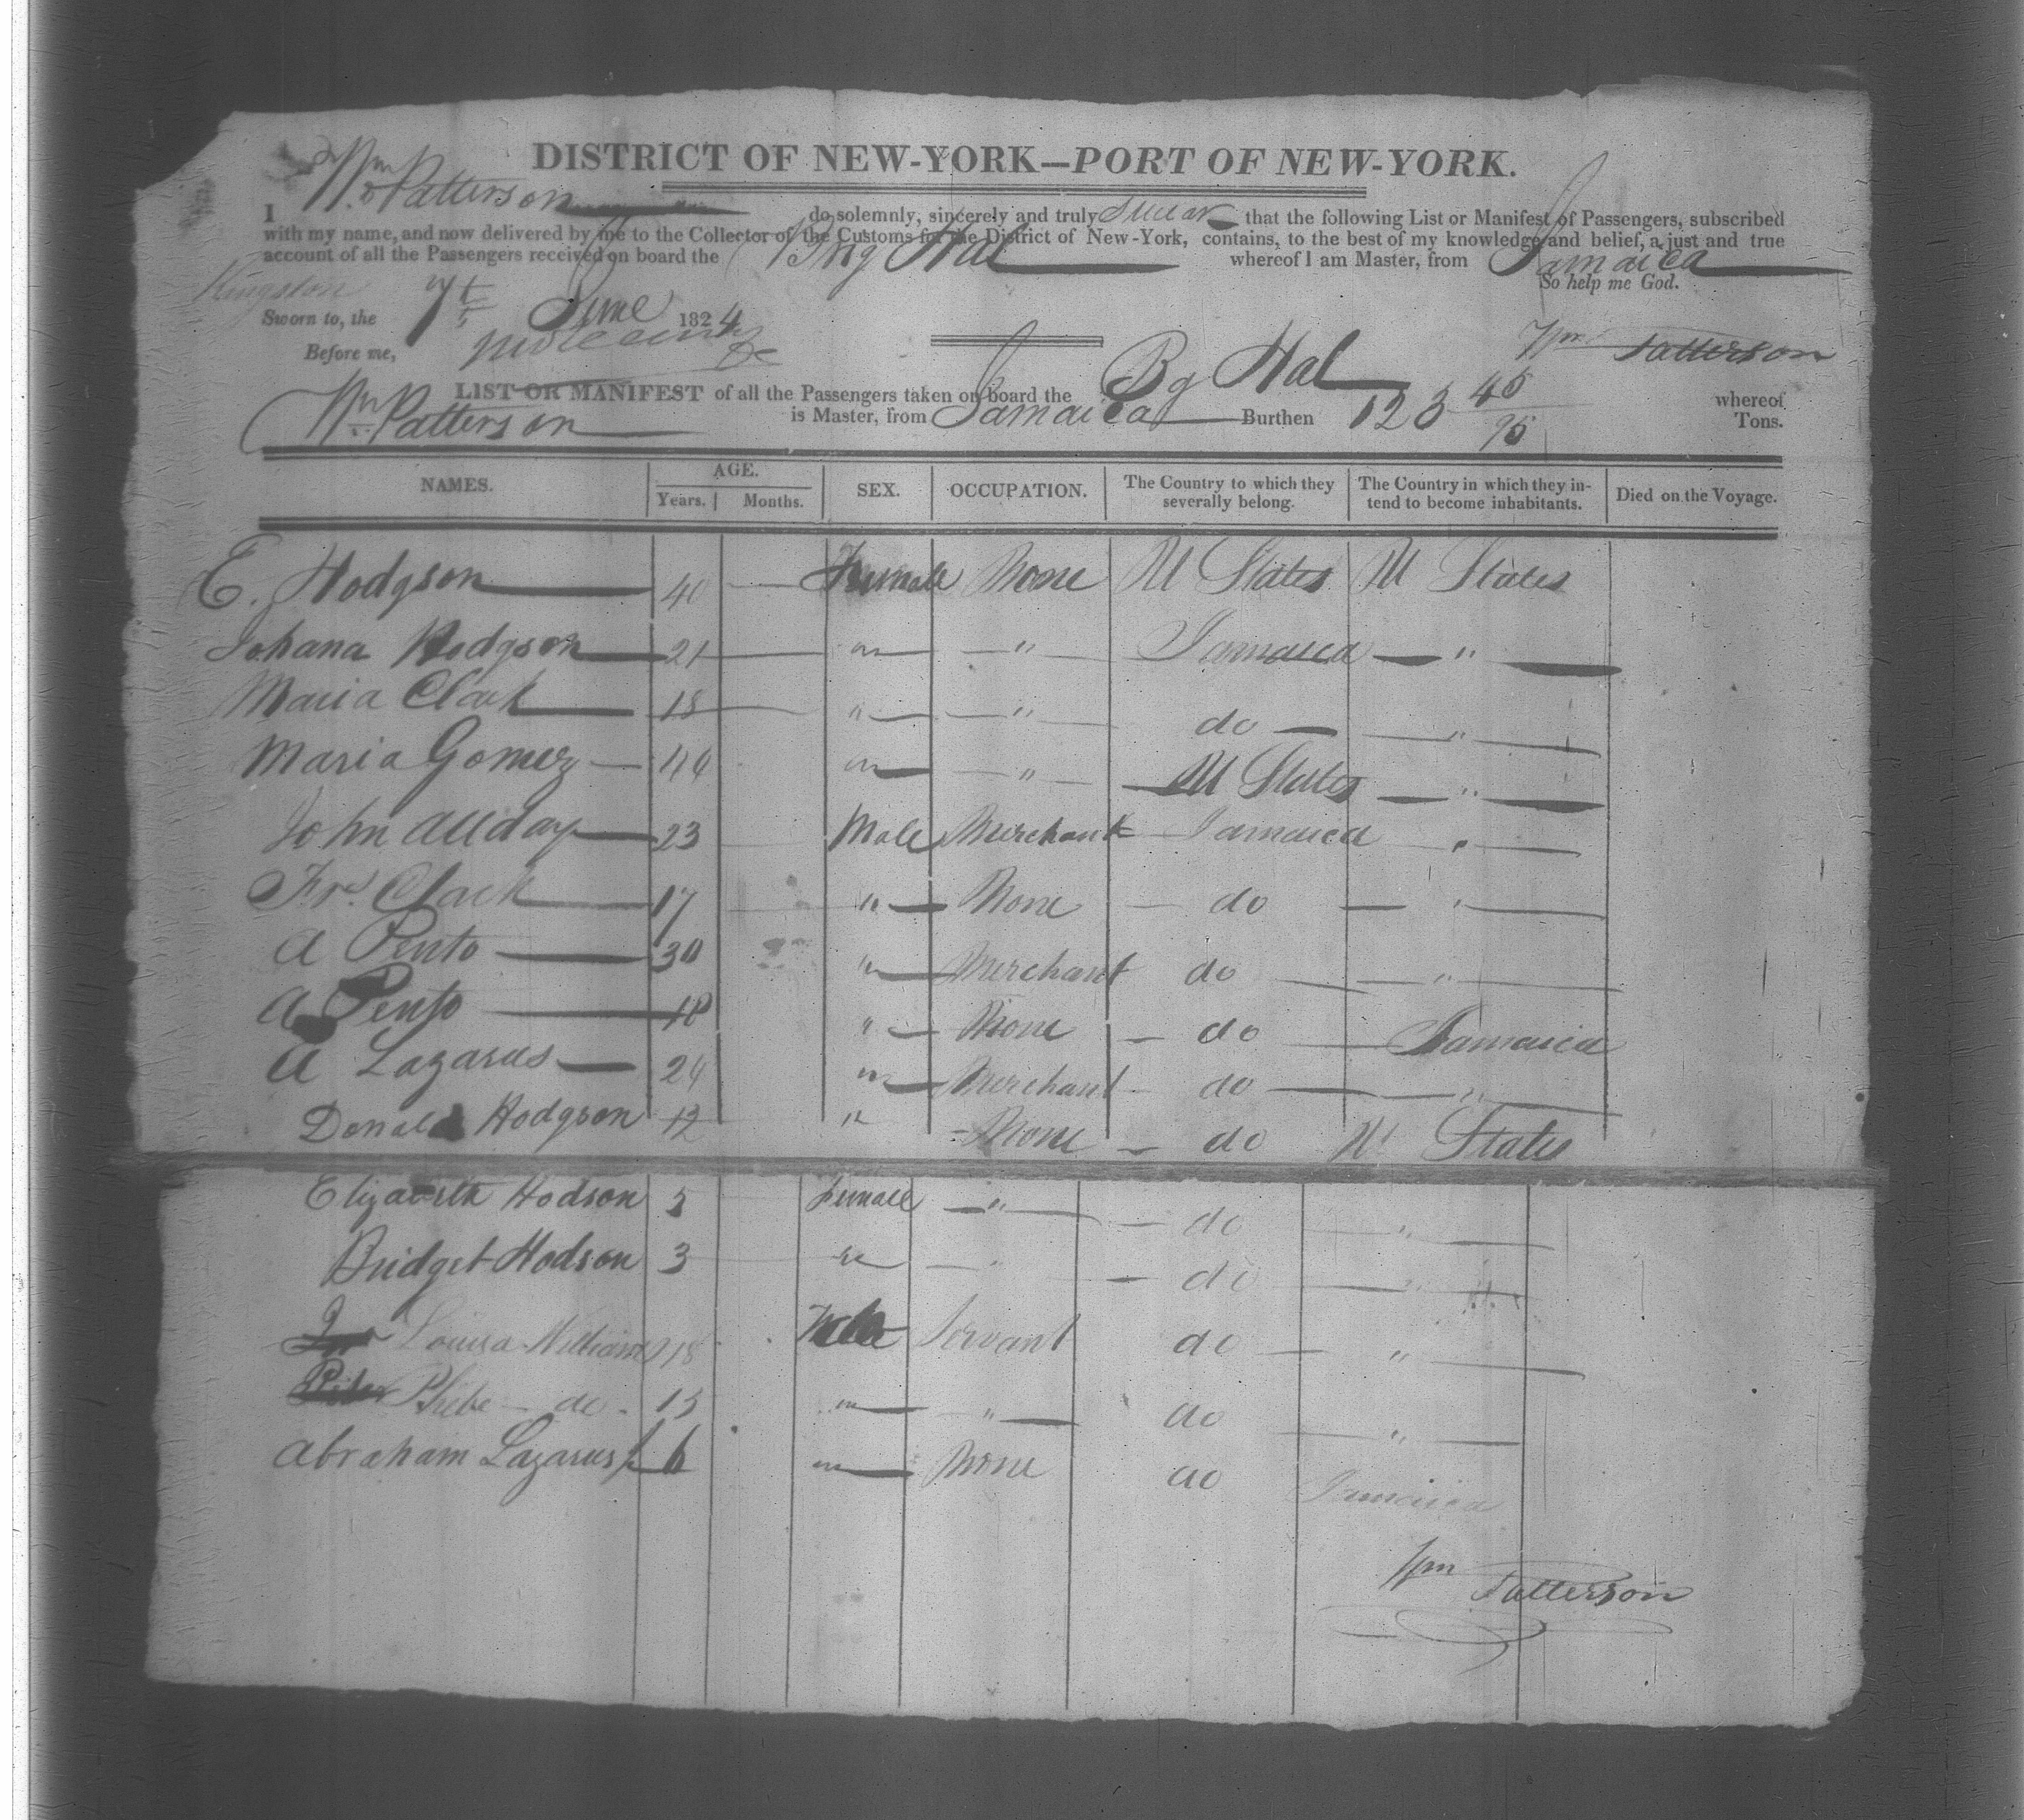 DISTRICT OF NEW-YORK—PORT OF NEW-YORK.
I Wm Patterson do solemnly, sincerely and truly Swear that the following List or Manifest of Passengers, subscribed
with my name, and now delivered by me to the Collector of the Customs for the District of New-York, contains, to the best of my knowledge and belief, a just and true
account of all the Passengers received on board the Brig Hal whereof I am Master, from Jamaica
Kingston
So help me God.
Sworn to, the 7th June 1824
Before me,
Wm Patterson
LIST OR MANIFEST of all the Passengers taken on board the Bg Hal whereof
Wm Patterson is Master, from Jamaica Burthen 123 45/95 Tons.
NAMES. AGE. Years. Months. SEX. OCCUPATION. The Country to which they severally belong. The Country in which they intend to become inhabitants. Died on the Voyage.
E. Hodgson 40 Female None U States U States
Johana Hodgson 21 " " Jamaica "
Maria Clack 18 " " do "
Maria Gomez 44 " " U States "
John Allday 23 Male Merchant Jamaica "
Fr. Clack 17 " None do "
A Pento 30 " Merchant do "
A Pento 18 " None do Jamaica
A Lazarus 24 " Merchant do "
Donald Hodgson 12 " None do U States
Elizabeth Hodson 5 Female " do "
Bridget Hodson 3 " " do "
Louisa Williams 18 Servant do "
Phebe do 15 " " do "
Abraham Lazarus 6 " None do Jamaica
Wm Patterson